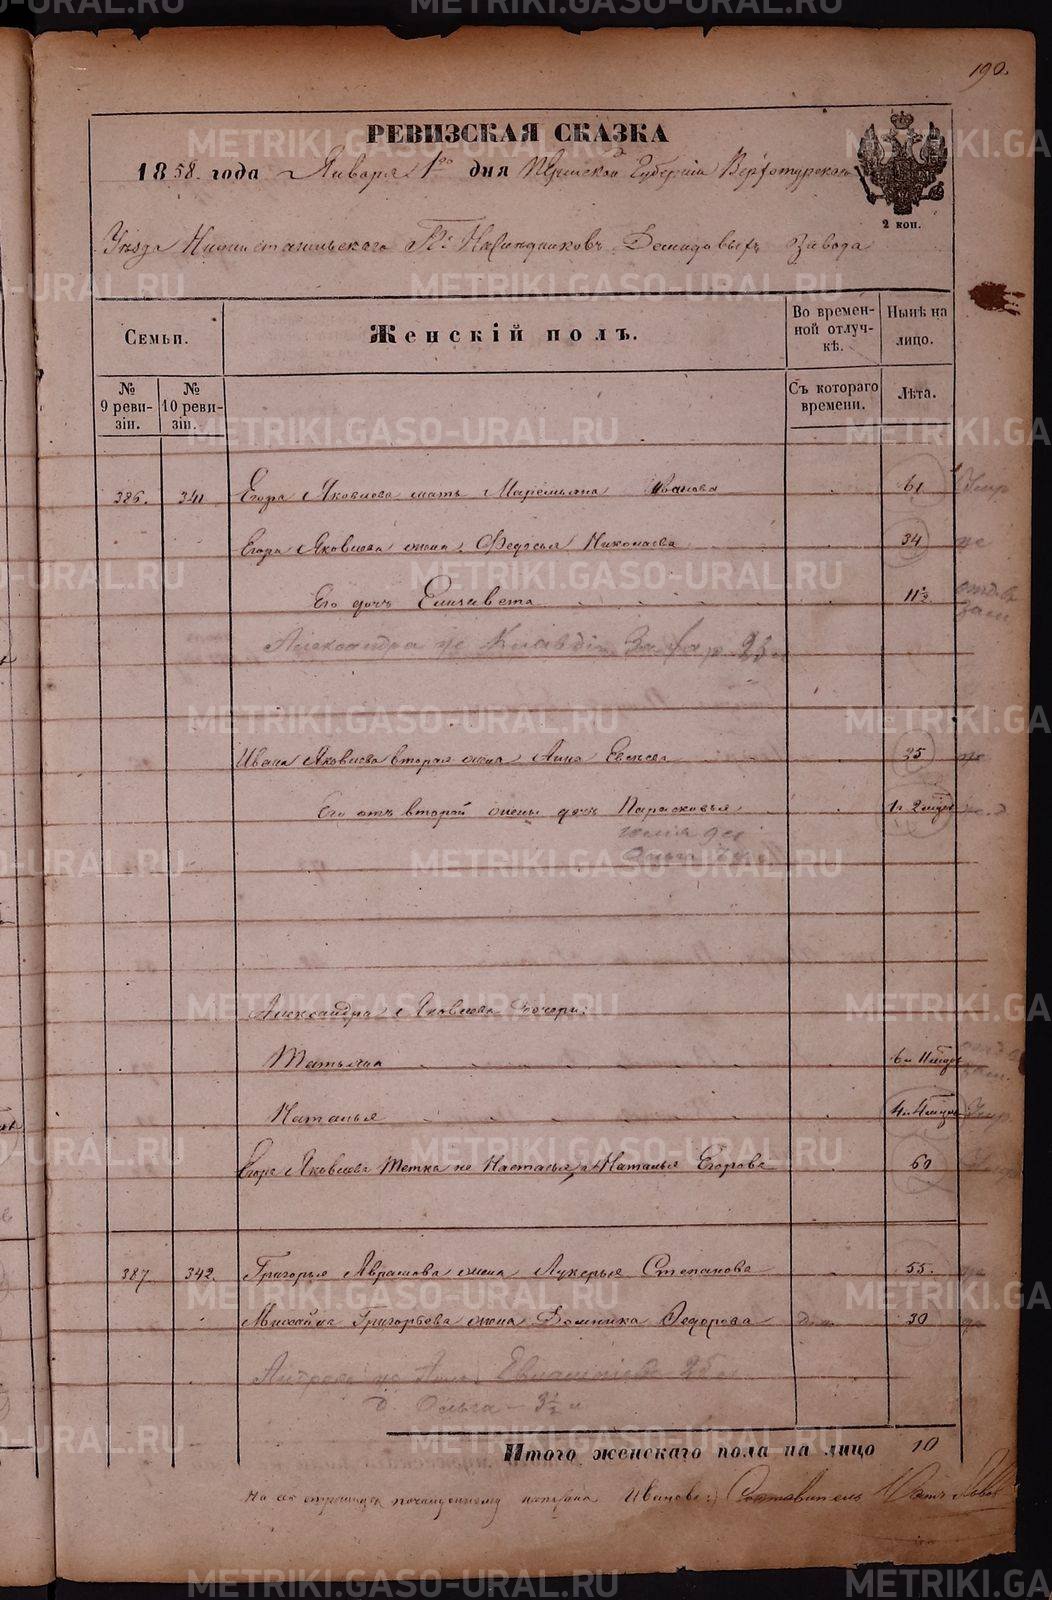 190.
РЕВИЗСКАЯ СКАЗКА
1858. года Января 1го дня Пермской Губерніи Верхотурскаго
Уѣзда Нижнетагильскаго Гг. Наслѣдниковъ Демидовыхъ Завода
2 коп.
Семьи. Женскій полъ. Во временной отлучкѣ. Нынѣ на лицо.
№ 9 ревизіи. № 10 ревизіи. Съ котораго времени. Лѣта.
386. 341 Егора Яковлева мать Маремьяна Иванова 61 Умр
Егора Яковлева жена Федосья Николаева 34 же
Его дочь Елизавета 11½
Александра же Клавдія 25
Ивана Яковлева вторая жена Анна 35 же
Его отъ второй жены дочь Парасковья 1 г 2 мѣсц
Ольга
Александра Яковлева дочери:
Татьяна 6 л 11 мѣсц
Наталья 4 л 4 мѣсц Умр
Егора Яковлева тетка не Настасья, а Наталья Егорова 60
387. 342. Григорья Аврамова жена Лукерья Степанова 55.
Михайла Григорьева жена Домника Федорова 30
д. Ольга – 3½ л
Итого женскаго пола на лицо 10
На сей страницѣ почищенному написано Иванова:) Составитель
METRIKI.GASO-URAL.RU